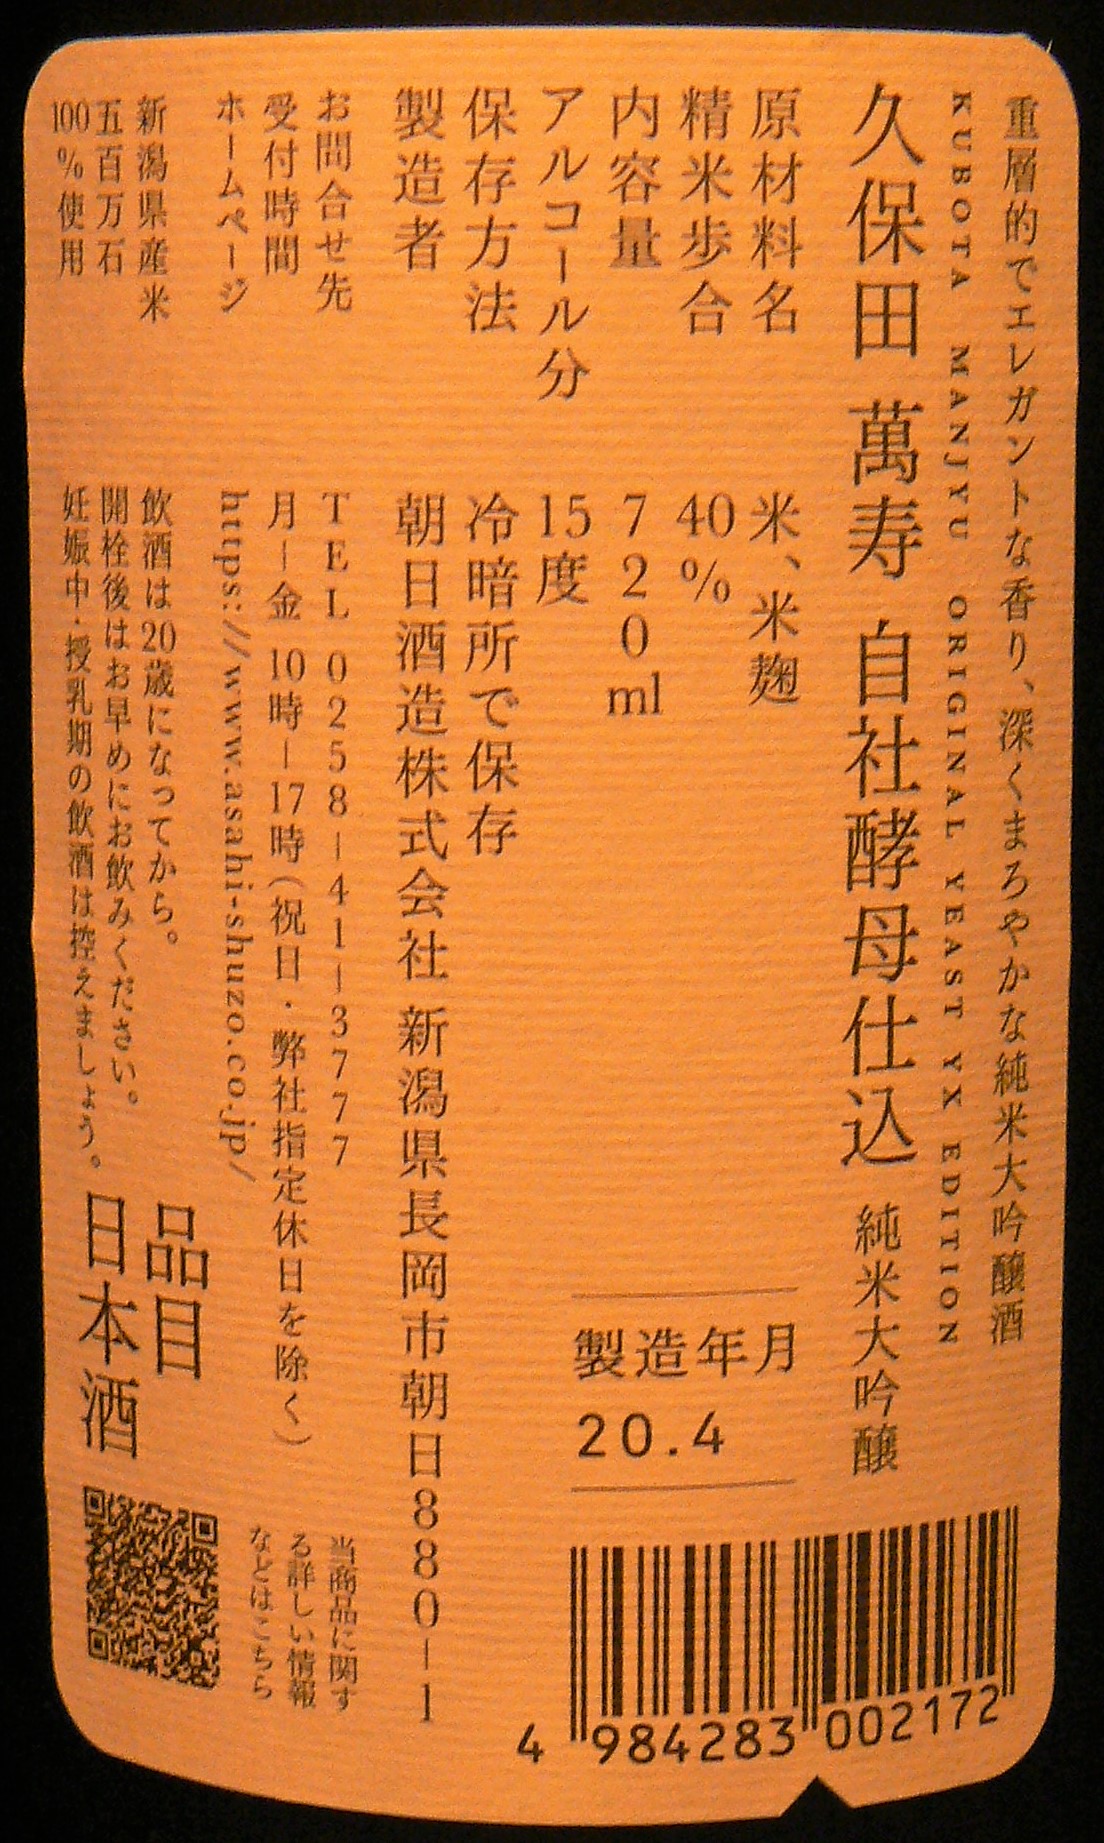 重層的でエレガントな香り、深くまろやかな純米大吟醸酒
KUBOTA MANJYU ORIGINAL YEAST YX EDITION
久保田 萬寿 自社酵母仕込 純米大吟醸
原材料名 米、米麹
精米歩合 40%
内容量 720ml
アルコール分 15度
保存方法 冷暗所で保存
製造者 朝日酒造株式会社 新潟県長岡市朝日880-1
製造年月
20.4
お問合せ先 TEL 0258-41-3777
受付時間 月-金 10時-17時(祝日・弊社指定休日を除く)
ホームページ https://www.asahi-shuzo.co.jp/
新潟県産米
五百万石
100%使用
飲酒は20歳になってから。
開栓後はお早めにお飲みください。
妊娠中・授乳期の飲酒は控えましょう。
品目
日本酒
当商品に関す
る詳しい情報
などはこちら
4 984283 002172